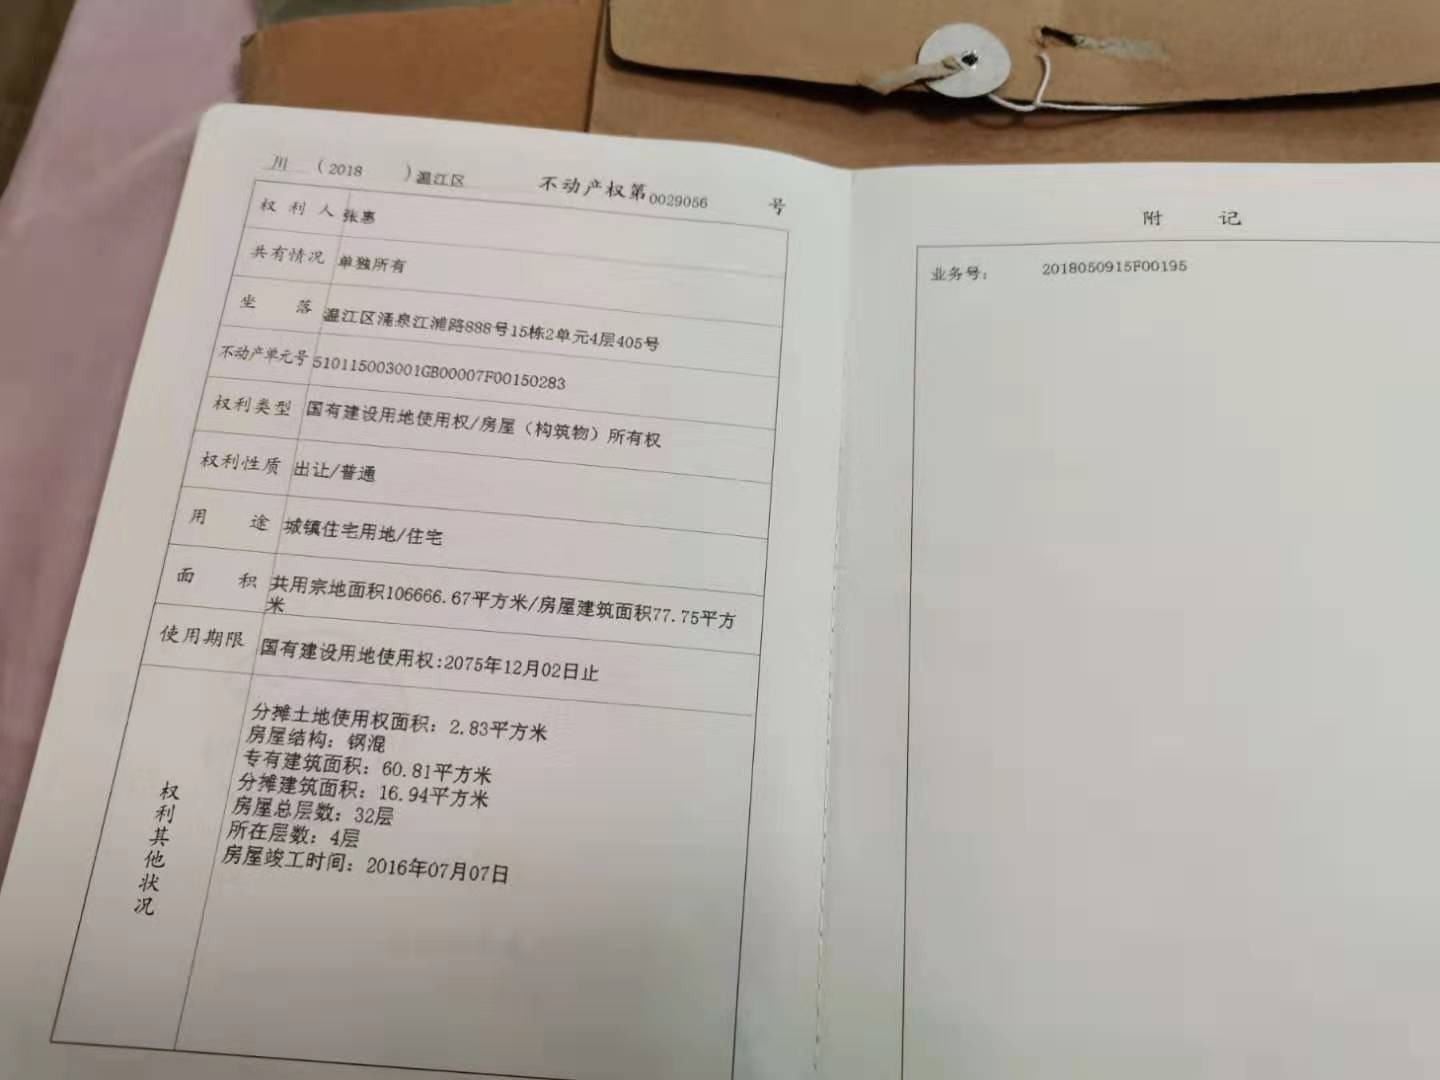 川 (2018 ) 温江区 不动产权第0029056 号
权利人 张惠
共有情况 单独所有
坐落 温江区涌泉江浦路888号15栋2单元4层405号
不动产单元号 510115003001GB00007F00150283
权利类型 国有建设用地使用权/房屋（构筑物）所有权
权利性质 出让/普通
用途 城镇住宅用地/住宅
面积 共用宗地面积106666.67平方米/房屋建筑面积77.75平方
米
使用期限 国有建设用地使用权:2075年12月02日止
权利其他状况
分摊土地使用权面积：2.83平方米
房屋结构：钢混
专有建筑面积：60.81平方米
分摊建筑面积：16.94平方米
房屋总层数：32层
所在层数：4层
房屋竣工时间：2016年07月07日
附记
业务号： 2018050915F00195